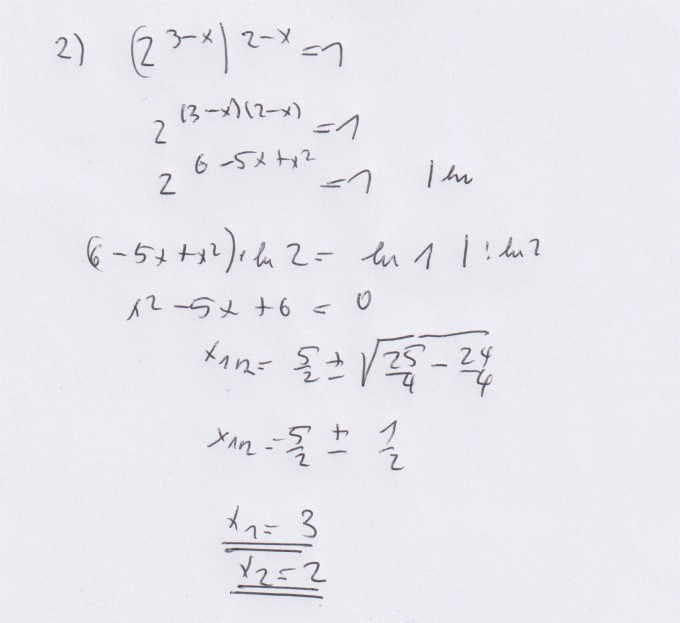 2) (2^{3-x})^{2-x} = 1
2^{(3-x)(2-x)} = 1
2^{6-5x+x²} = 1 | ln
(6-5x+x²)·ln 2 = ln 1 | : ln 2
x² - 5x + 6 = 0
x_{1/2} = 5/2 ± √(25/4 - 24/4)
x_{1/2} = 5/2 ± 1/2
x_1 = 3
x_2 = 2